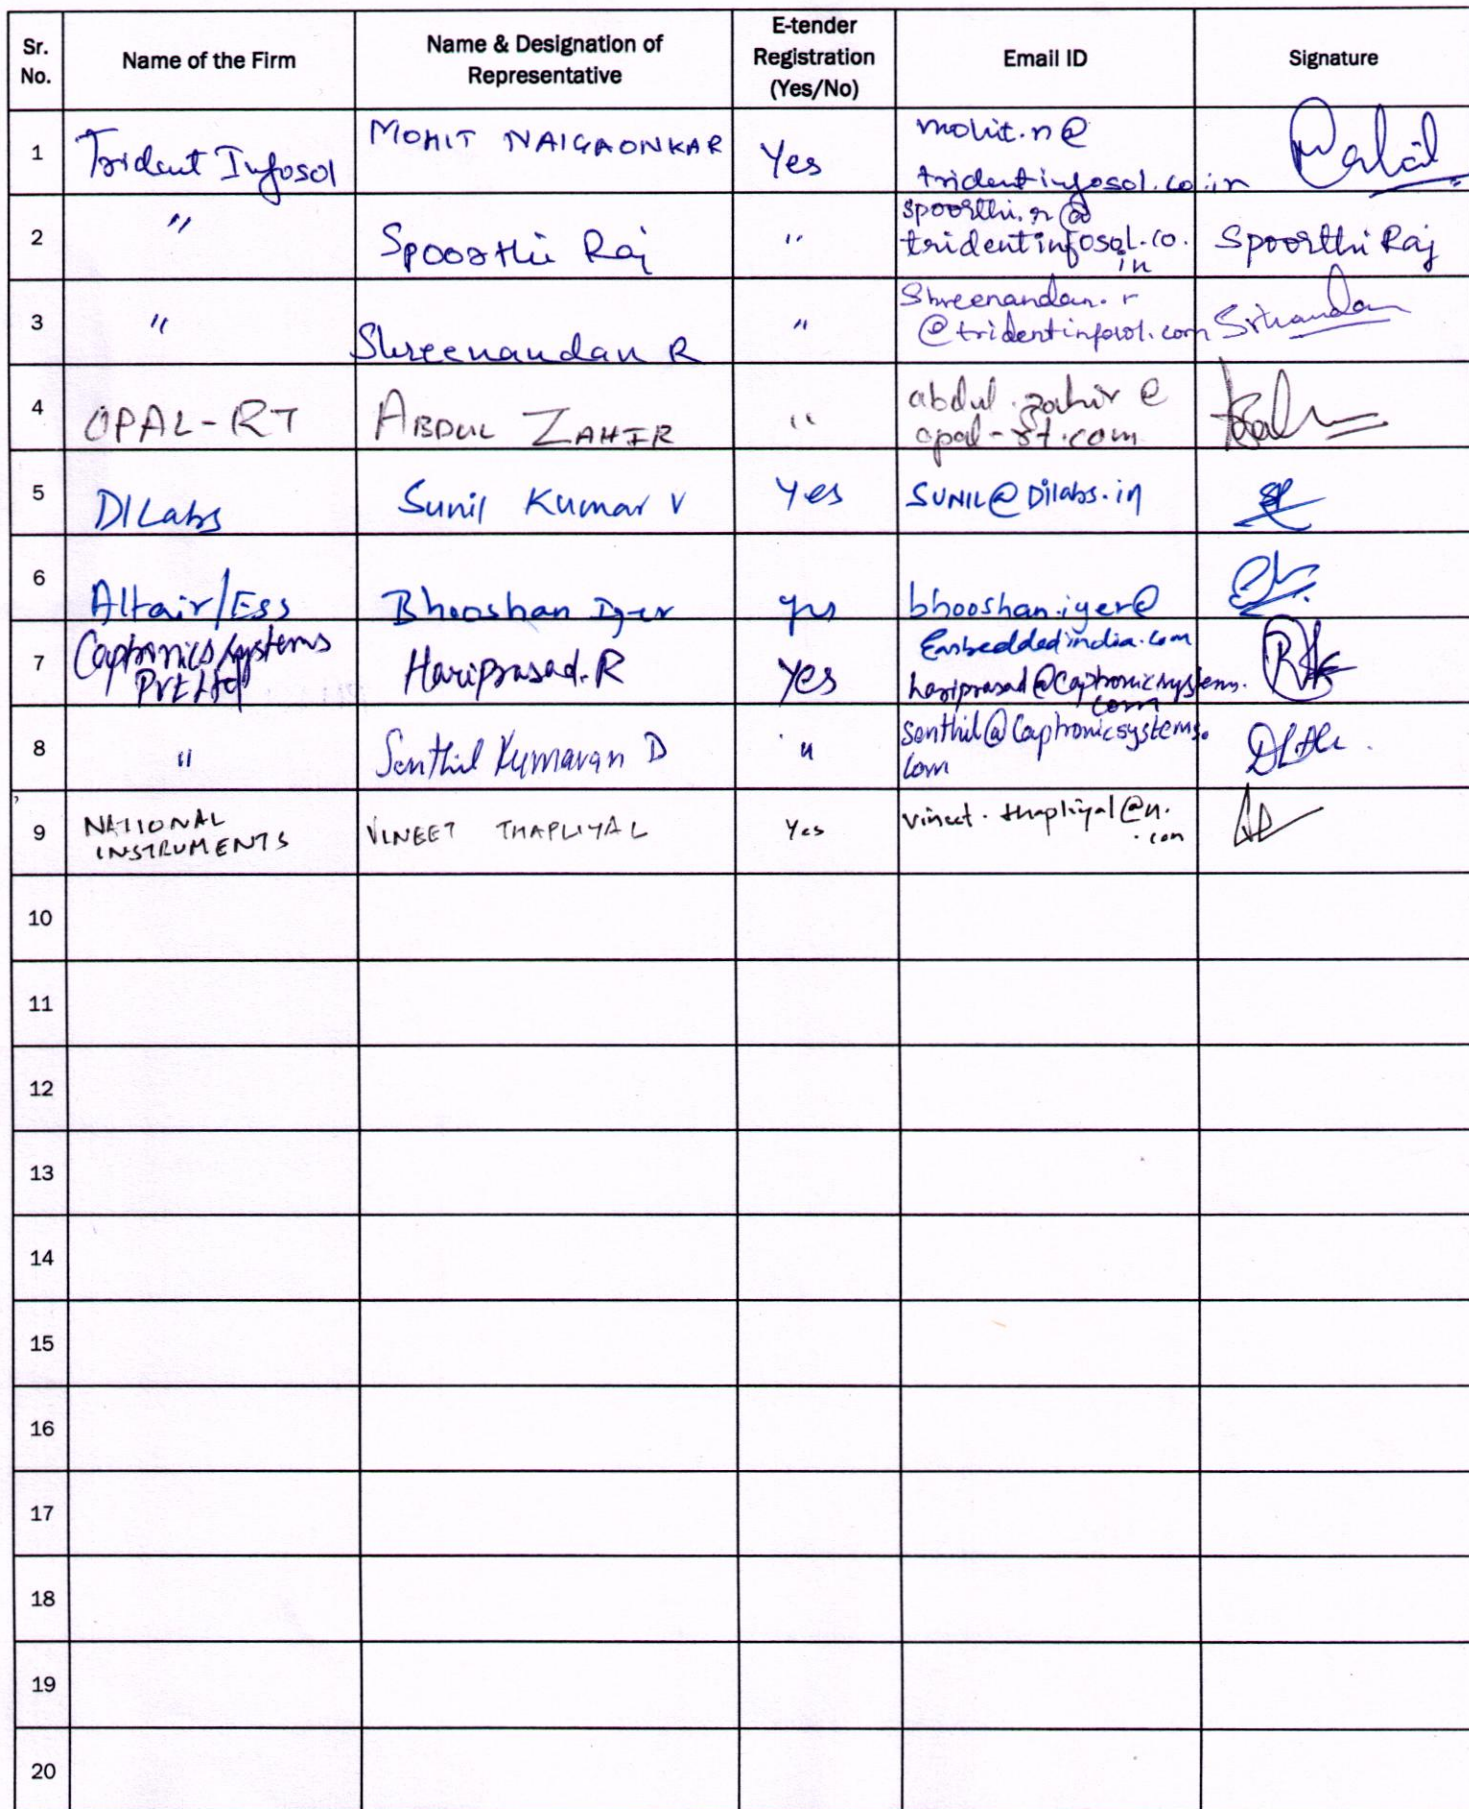 Sr. No. Name of the Firm Name & Designation of Representative E-tender Registration (Yes/No) Email ID Signature
1 Trident Infosol MOHIT NAIGAONKAR Yes mohit.n@ tridentinfosol.co.in
2 " Spoorthi Raj " spoorthi.r@ tridentinfosol.co.in Spoorthi Raj
3 " Shreenandan R " Shreenandan.r @tridentinfosol.com
4 OPAL-RT ABDUL ZAHIR " abdul.zahir@ opal-rt.com
5 DILabs Sunil Kumar V Yes SUNIL@Dilabs.in
6 Altair/Ess Bhooshan Iyer yes bhooshan.iyer@ Embeddedindia.com
7 Captronics Systems Pvt Ltd Hariprasad.R Yes hariprasad@Captronicsystems.com
8 " Senthil Kumaran D " senthil@Captronicsystems.com
9 NATIONAL INSTRUMENTS VINEET THAPLIYAL Yes vineet.thapliyal@n..com
10
11
12
13
14
15
16
17
18
19
20